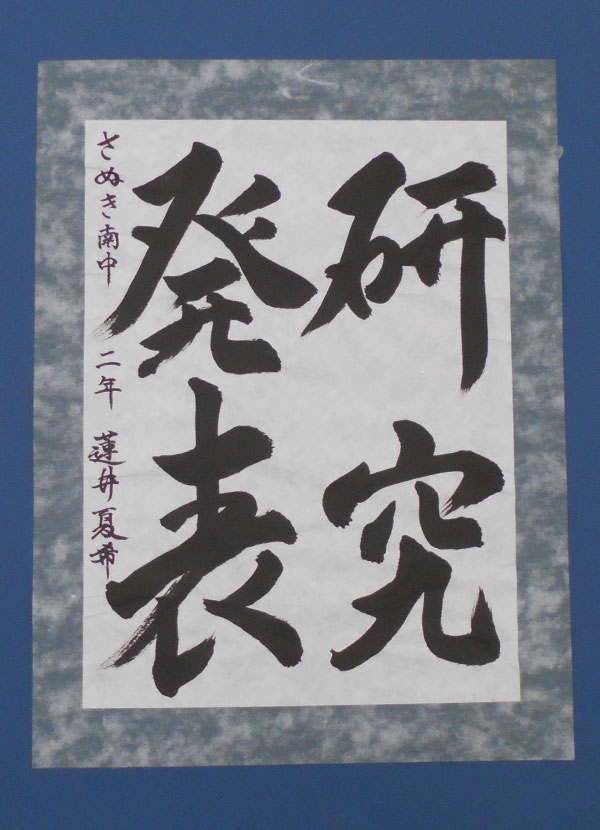 研究
発表
さぬき南中 二年 蓮井夏希